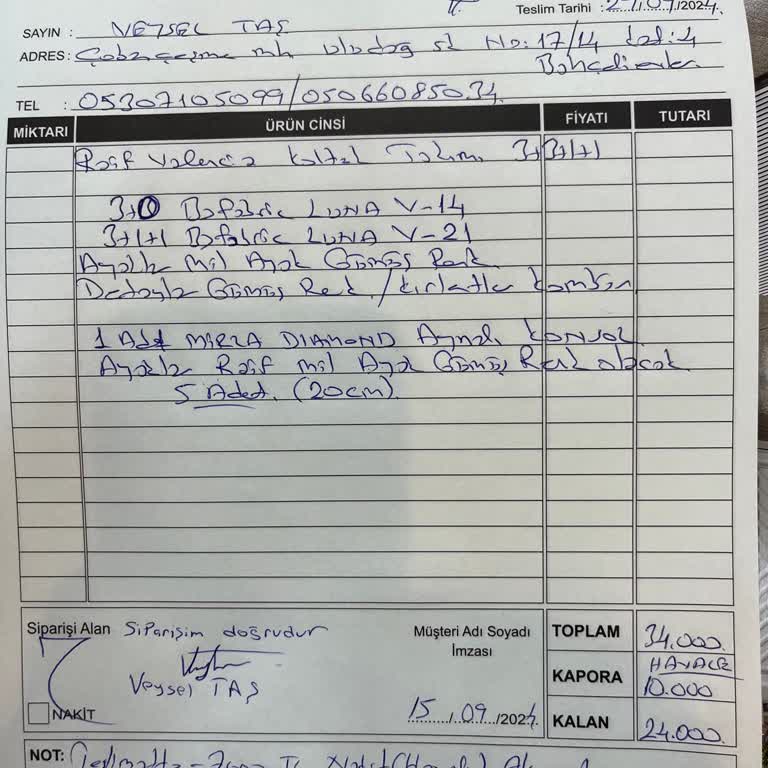 Teslim Tarihi : 27/09/2024
SAYIN : VEYSEL TAŞ
ADRES: Çobançeşme mh uludağ sk No: 17/14 kat:4
Bahçelievler
TEL : 05307105099/05066085034
MİKTARI ÜRÜN CİNSİ FİYATI TUTARI
Rasif Valencia koltuk Takımı 3+3+1+1
3+0 Bafabric LUNA V-14
3+1+1 Bafabric LUNA V-21
Ayaklar mil Ayak Gümüş Renk
Detaylar Gümüş Renk / kırlentler kombin
1 Adt MİRZA DIAMOND Aynalı KONSOL
Ayaklar Rasif mil Ayak Gümüş Renk olacak
5 Adet. (20cm).
Siparişi Alan Siparişim doğrudur
Müşteri Adı Soyadı
İmzası
Veysel TAŞ
NAKİT
15/09/2024
TOPLAM 34.000.
HAVALE
KAPORA 10.000
KALAN 24.000.
NOT: